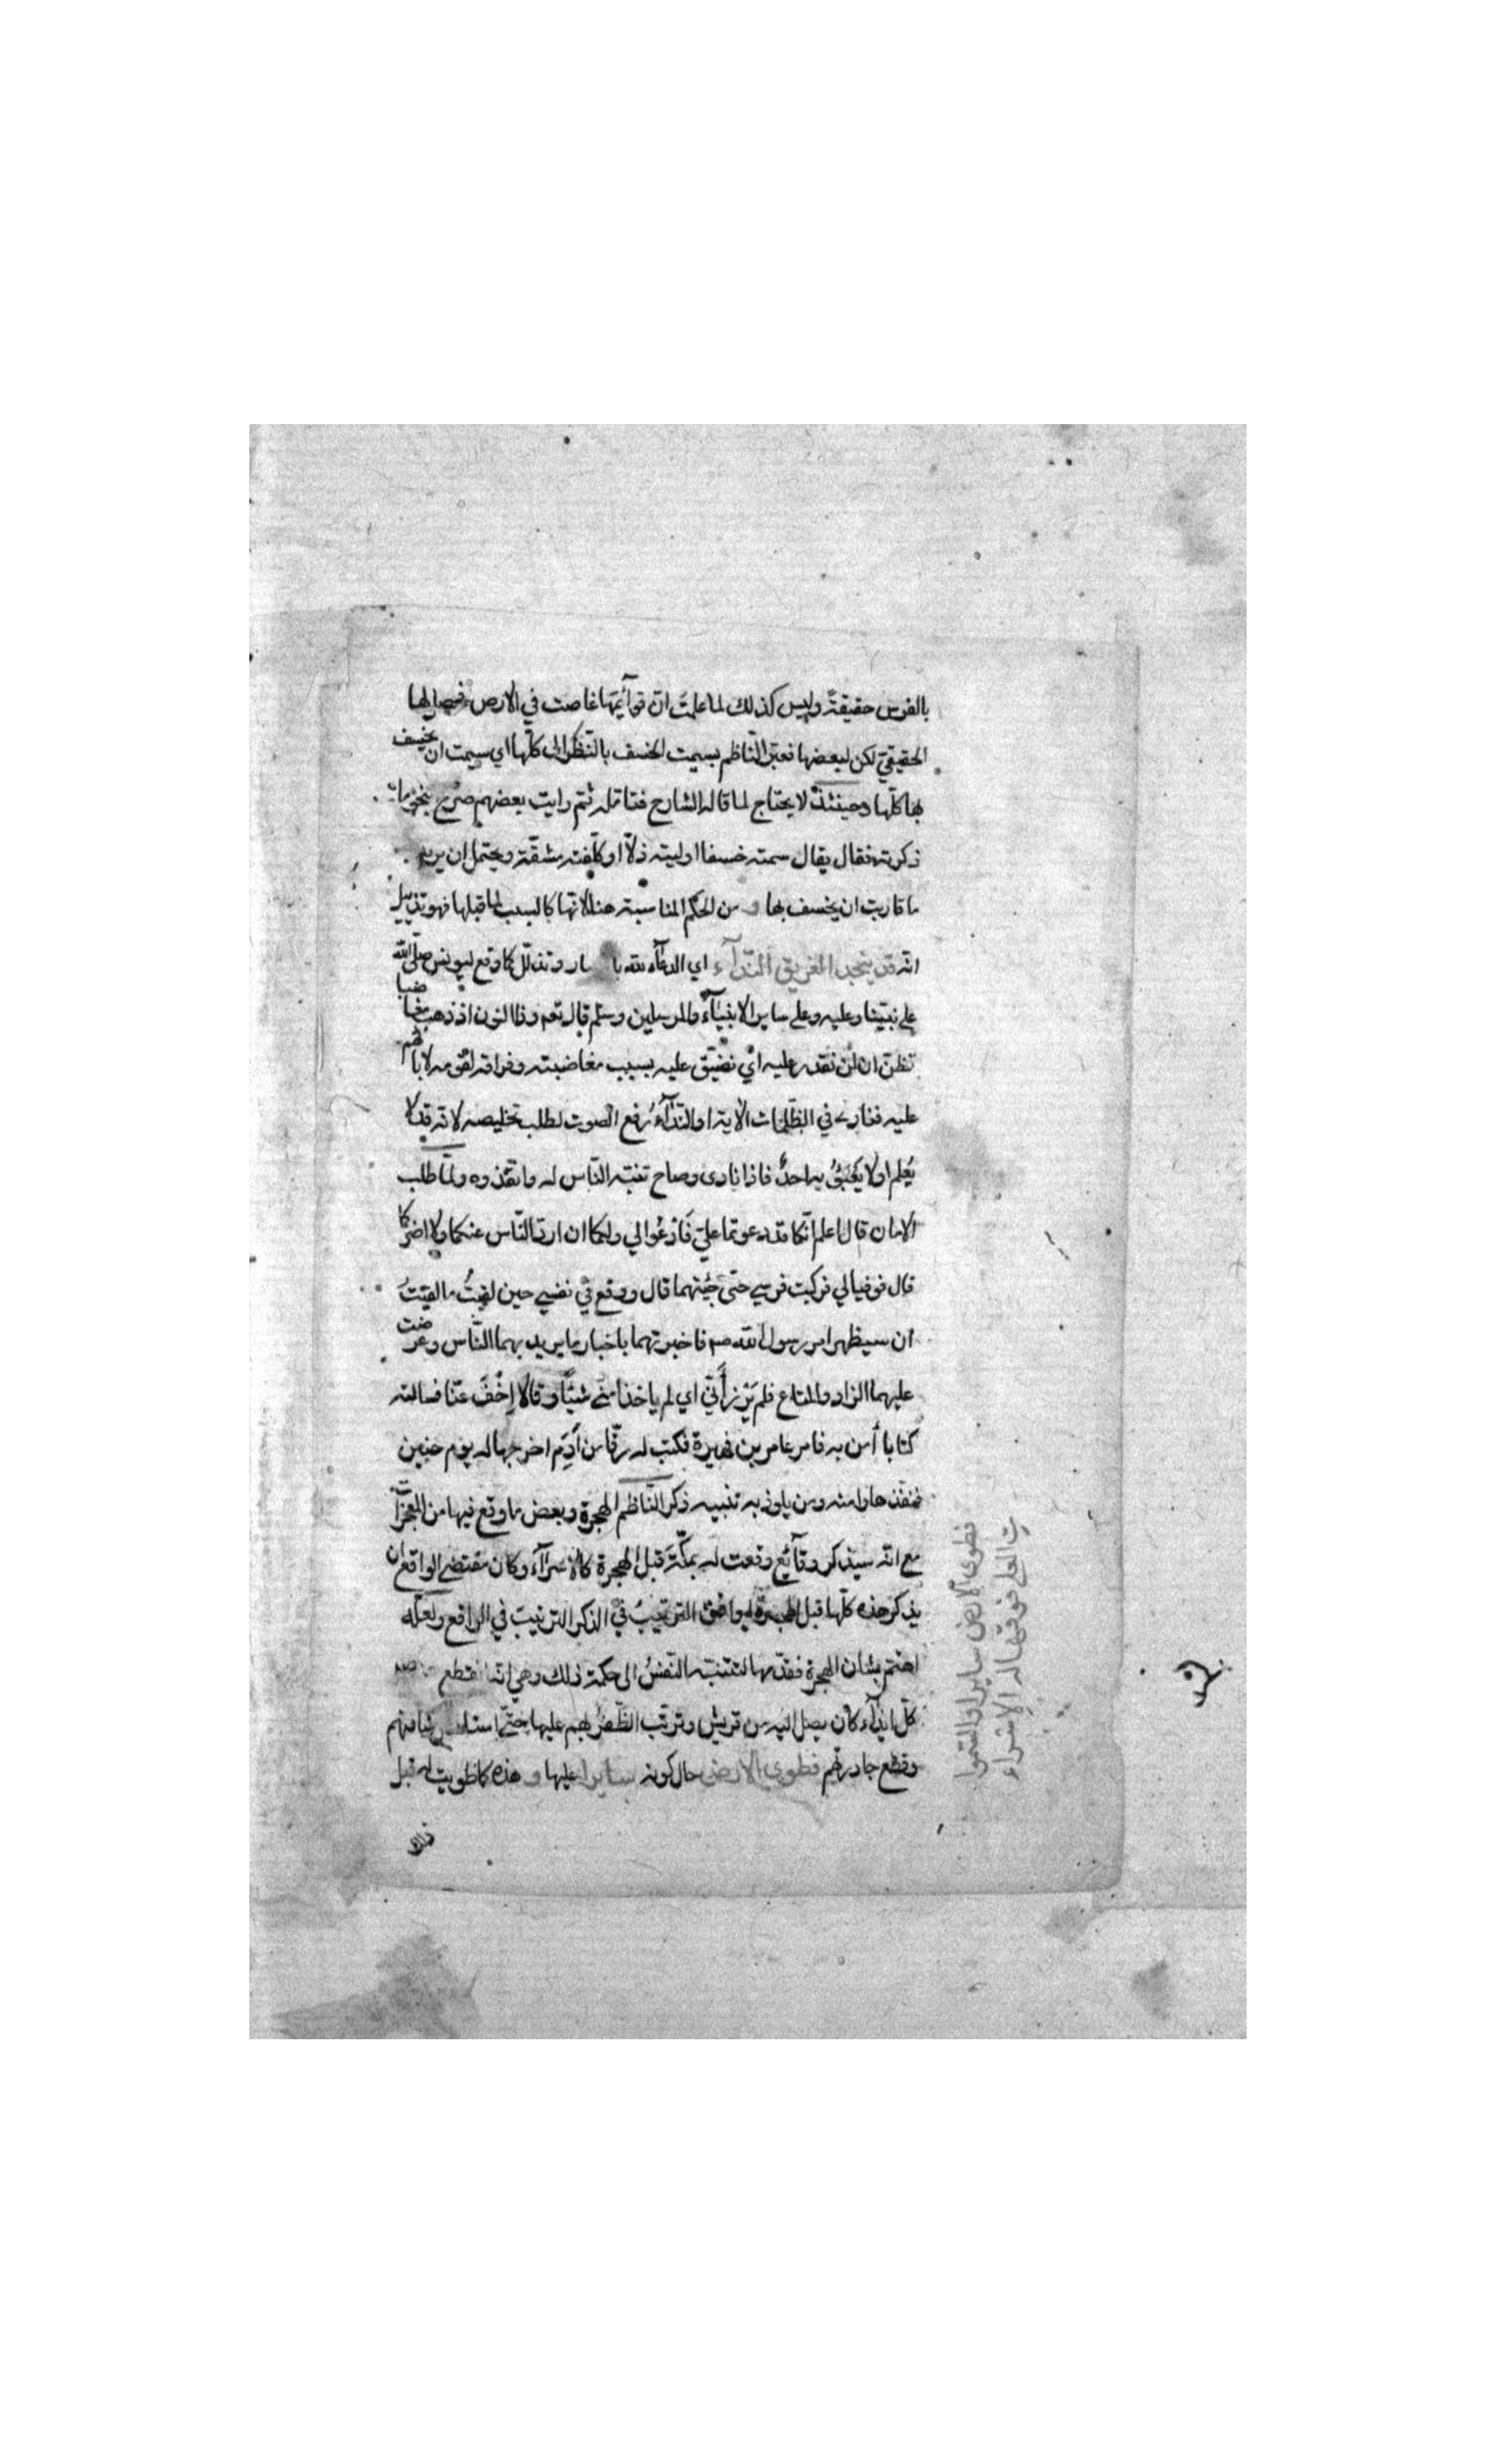 بالفرس حقيقةً وليس كذلك لما علمتَ انّ قوآئمها غاصت في الارض فحصل لها
الحقيقيّ لكن لبعضها فعبّر النّاظم بسيمت الخسف بالنّظر الى كلّها اي سيمت ان يخسف
بها كلّها وحينئذٍ لا يحتاج لما قاله الشارح فتأمّله ثمّ رايت بعضهم صرّح بنحو ما
ذكرته فقال يقال سمته خسفا اوليته ذلّا او كلّفته مشقّة ويحتمل ان يريد
ما قاربت ان يخسف بها و من الحكم المناسبة هنا لانّها كالسبب لما قبلها فهو تذييل
انّه قد ينجد الغريق النّدآء اي الدعآء لله وتذلّل كما وقع ليونس صلّى الله
على نبيّنا وعليه وعلى ساير الانبيآء والمرسلين وسلّم قال تعم وذا النون اذ ذهب مغاضبا
فظنّ ان لن نقدر عليه اي نضيّق عليه بسبب مغاضبته وفراقه لقومه لابآئهم
عليه فنادى في الظّلمات الاية او النّدآء رفع الصوت لطلب تخليصه لانّه قد لا
يُعلم او لا يَعْبَؤُ به احدٌ فاذا نادى وصاح تنبّه النّاس له وانقذوه ولمّا طلب
الامان قال اعلم انّكما قد دعوتما عليّ فَادْعُوا لي ولكما ان اردّ النّاس عنكما ولا اضركما
قال فوفيا لي فركبت فرسي حتّى جئتهما قال ووقع في نفسي حين لقيتُ ما لقيتُ
ان سيظهر امر رسول الله صم فاخبرتهما باخبار ما يريد بهما النّاس وعرضت
عليهما الزاد والمتاع فلم يَرْزَأَنّي اي لم ياخذا منّي شيئًا وقالا اِخْفَ عنّا فسالته
كتابا أمن به فامر عامر بن فهيرة فكتب له رقّا من أديم اخرجها له يوم حنين
فنفّذها وامنه ومن يلوذ به تنبيه ذكر النّاظم الهجرة وبعض ما وقع فيها من المعجزات
مع انّه سيذكر وقآئع وقعت له بمكّة قبل الهجرة كالاسرآء وكان مقتضى الواقع ان
يذكر هذه كلّها قبل الهجرة ليوافق الترتيب في الذكر الترتيب في الواقع ولعلّه
اهتم بشان الهجرة فقدّمها لتتنبّه النّفسُ الى حكمة ذلك وهي انّه انقطع
كلّ ايذآء كان يصل اليه من قريش وترتّب الظّفرُ بهم عليها حتّى شافتهم
وقطع جادرتهم فطوى الارض حال كونه سايرا عليها و هذه كما طويت له قبل
فطوى الارض سايرا والسّموا
ت العلى فوقها له الاسراء